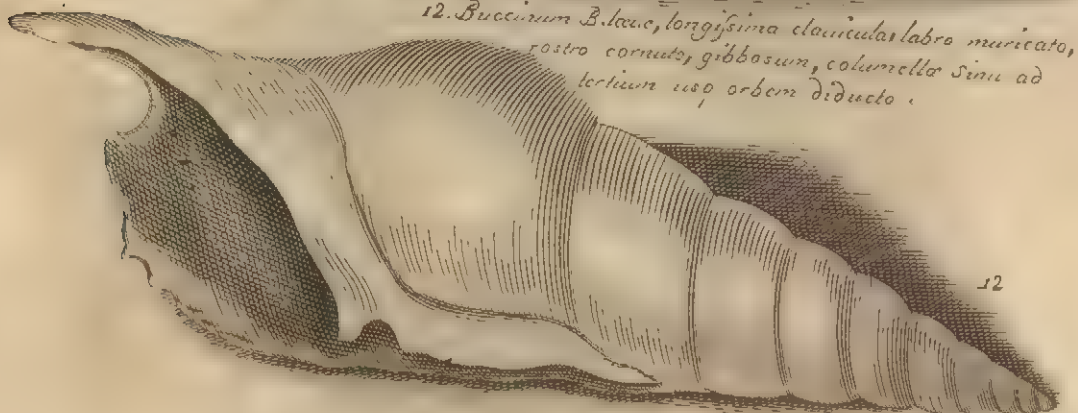 12. Buccinum B. læue, longiſsima clauicula, labro muricato,
rostro cornuto, gibbosum, columellæ sinu ad
tertium usq orbem diducto.
12